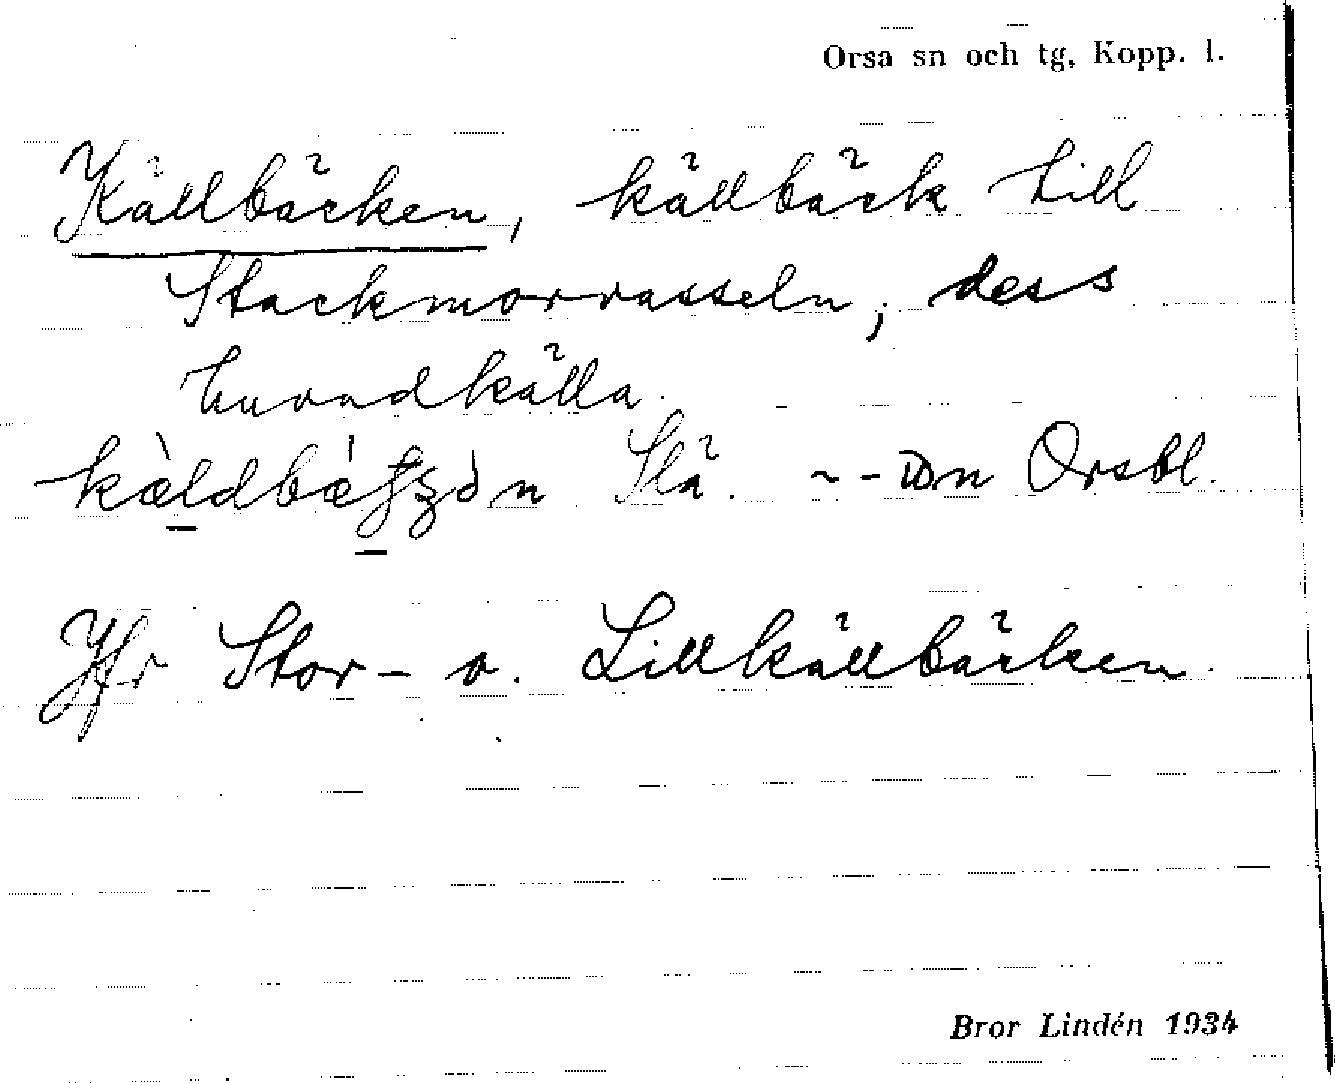 Orsa sn och tg, Kopp. l.
Källbäcken, källbäck till
Stackmorrasseln, dess
huvudkälla.
Slä. ~-ɷn Orsbl.
Jfr Stor- o. Lillkällbäcken.
Bror Lindén 1934